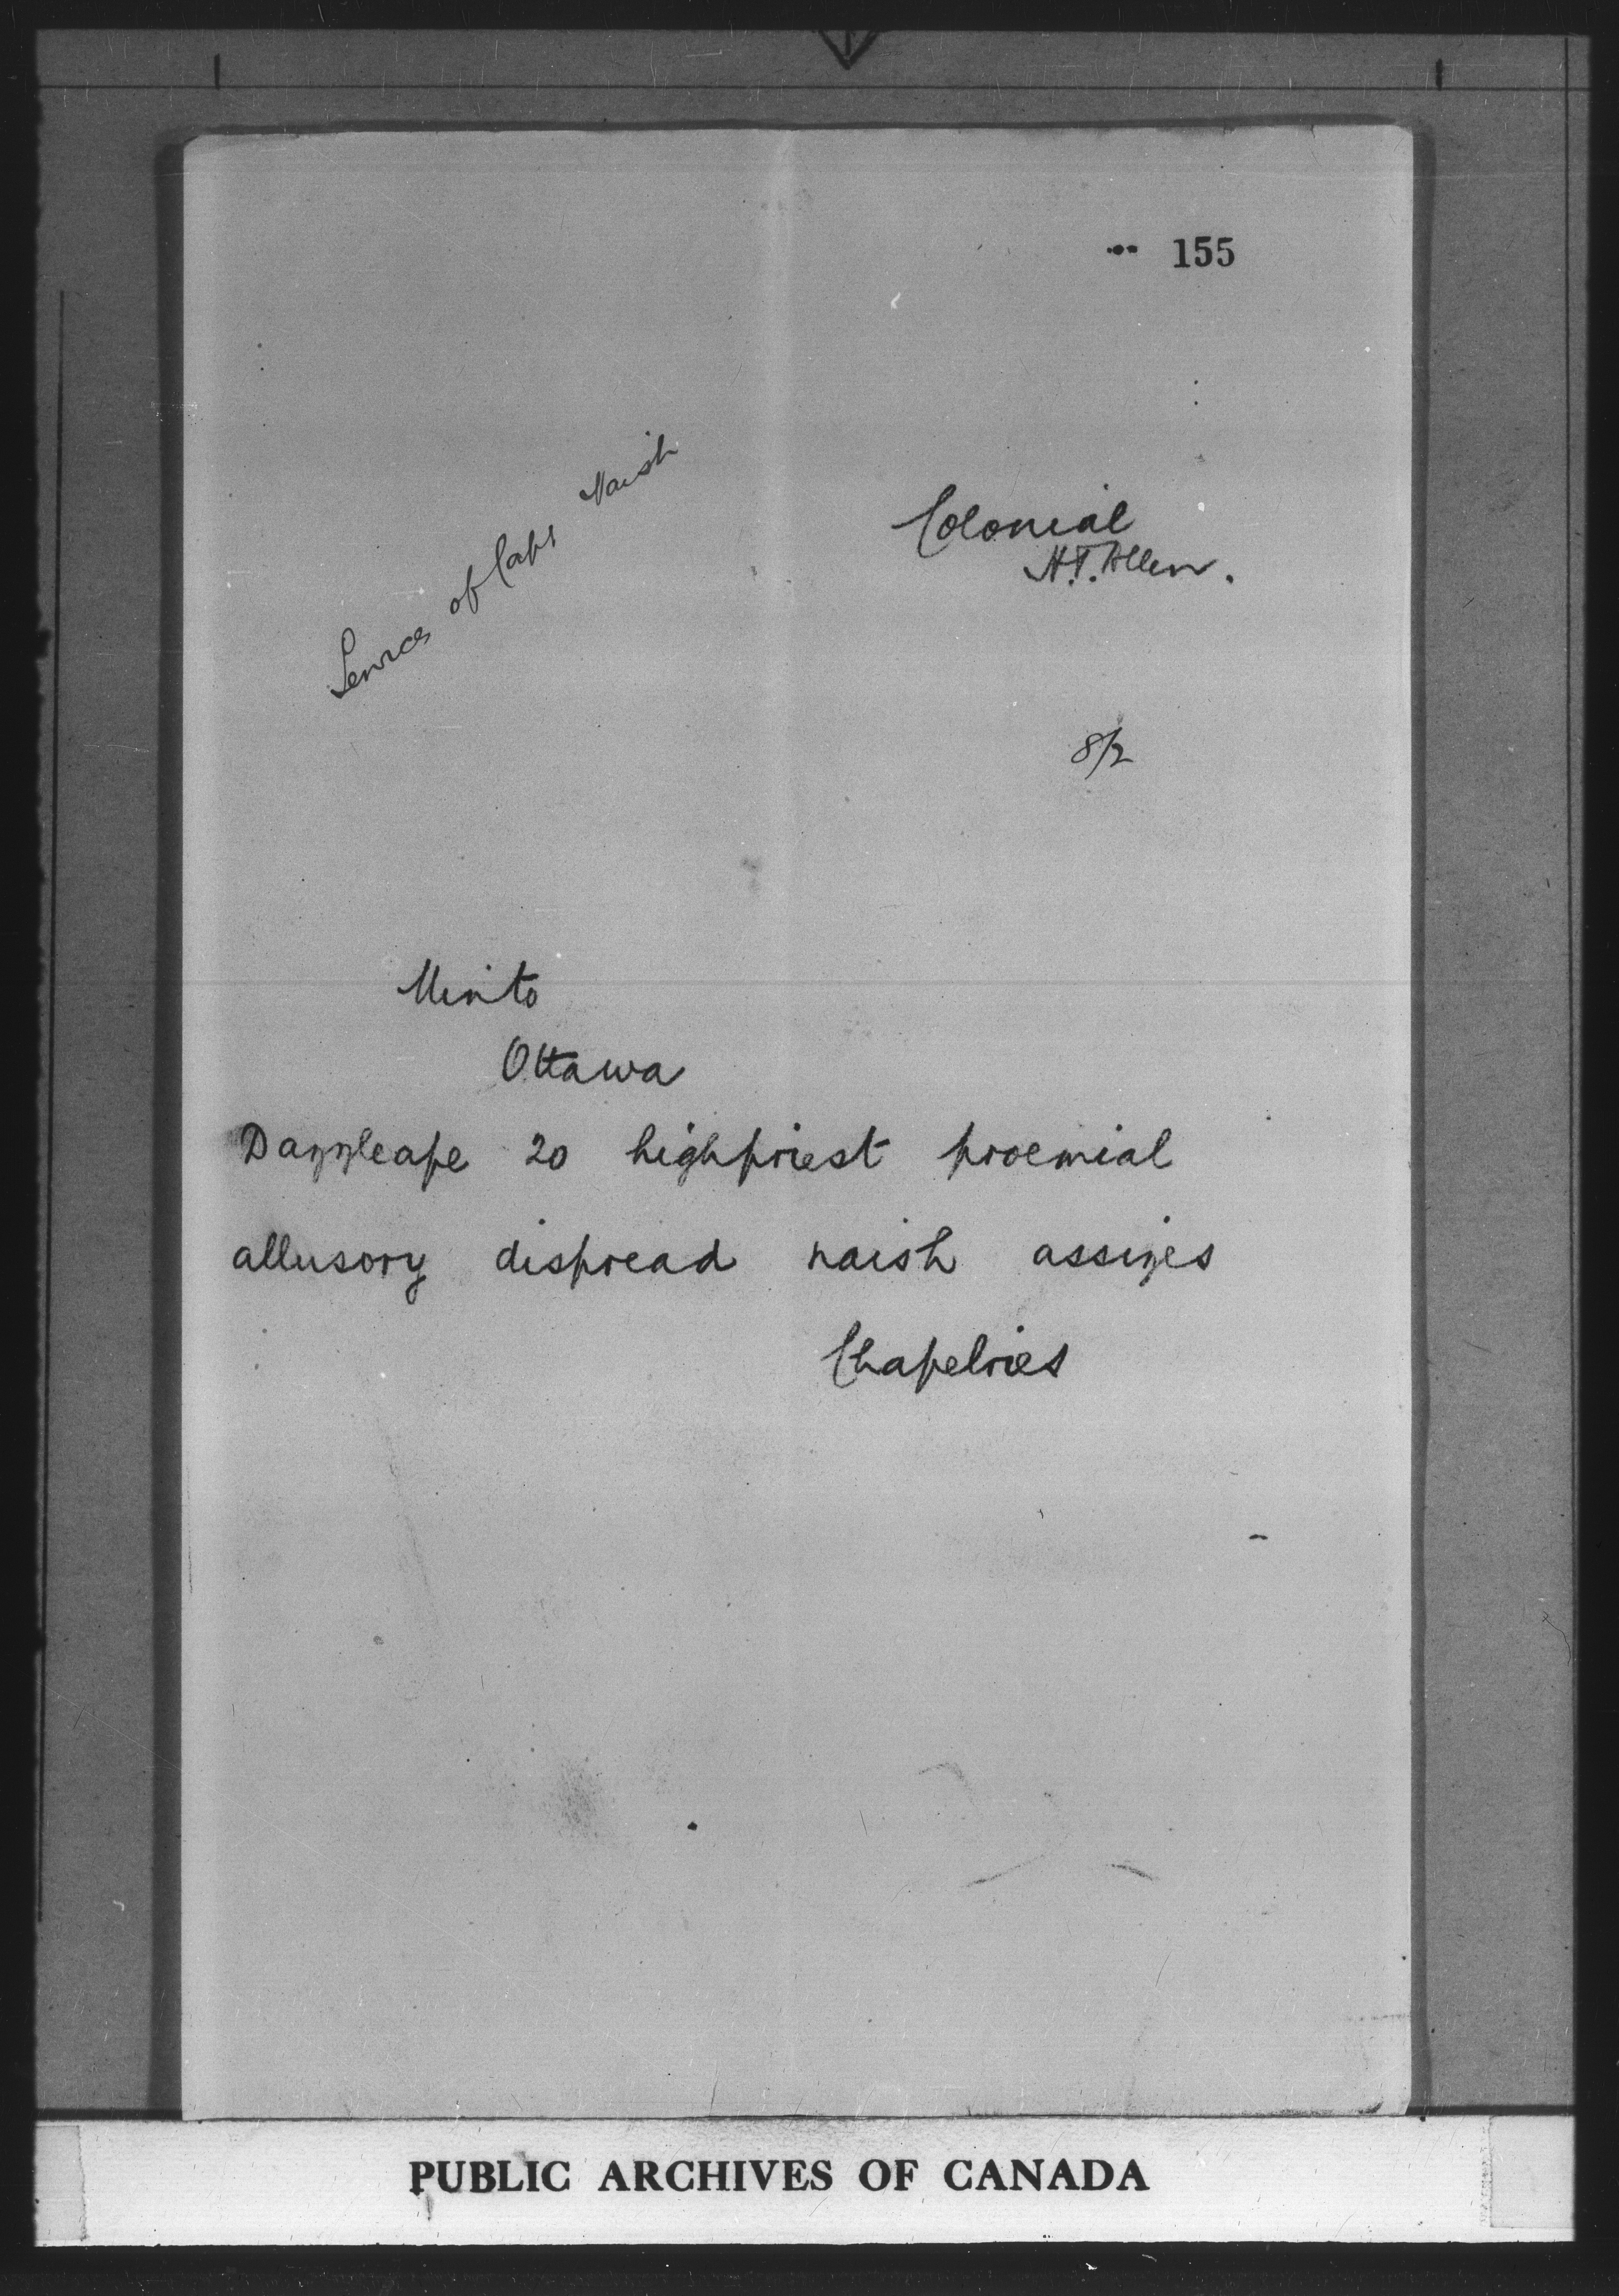 155
Services of Capt Naish
Colonial
H.T. Allen.
8/2
Minto
Ottawa
Dazzleape 20 highpriest proemial
allusory dispread naish assizes
Chapelries
PUBLIC ARCHIVES OF CANADA